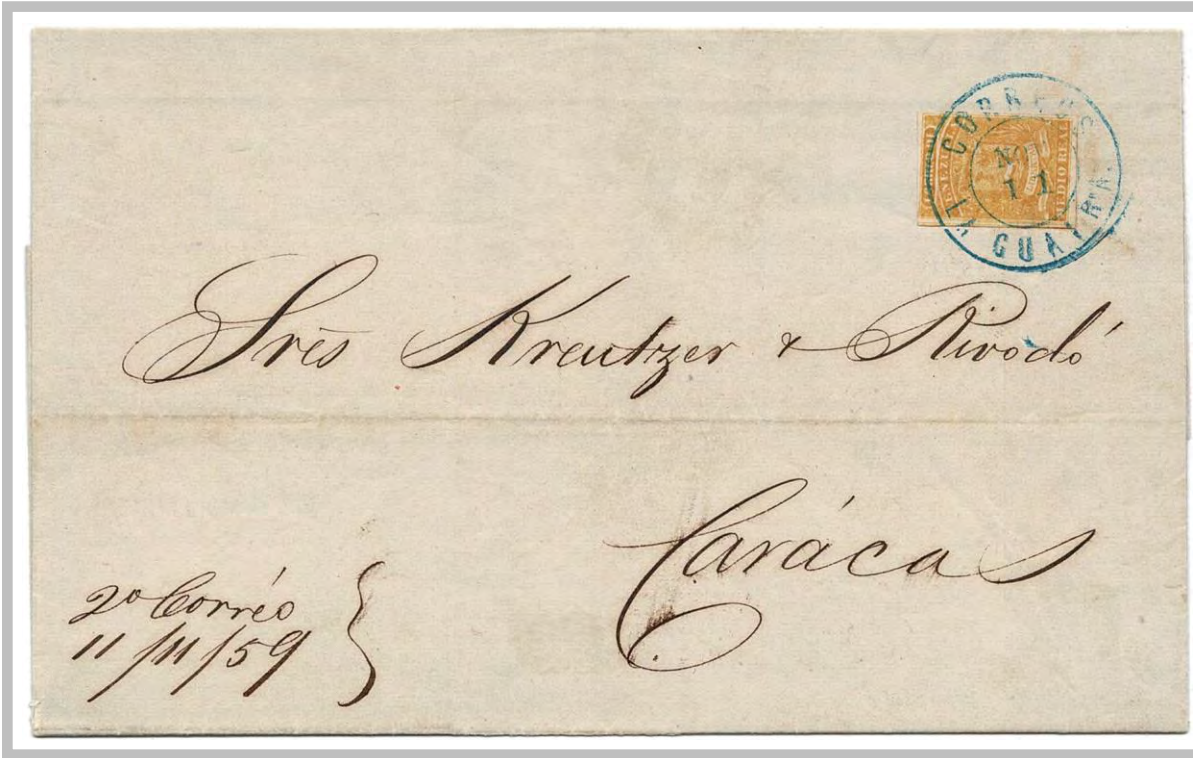 CORREOS
NOV
11
LA GUAIRA.
MEDIO REAL
Srēs Kreutzer & Rivodó
Carácas
2º Corréo
11/11/59